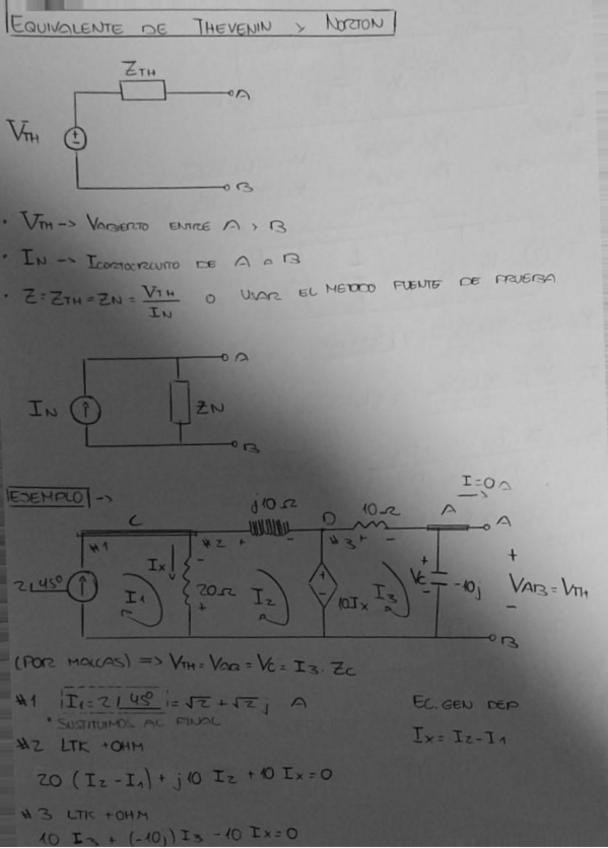 EQUIVALENTE DE THEVENIN Y NORTON
ZTH
A
VTH
B
· VTH -> VABIERTO ENTRE A Y B
· IN -> ICORTOCIRCUITO DE A a B
· Z = ZTH = ZN = VTH / IN O USAR EL METODO FUENTE DE PRUEBA
A
IN
ZN
B
EJEMPLO ->
I=0A
C j10Ω D 10Ω A A
#1 Ix #2 + - #3 + -
2∠45° I1 - 20Ω + I2 + - 10Ix I3 + Vc - -10j + VAB = VTH -
B
(POR MALLAS) => VTH = VAB = VC = I3 · ZC
#1 I1 = 2∠45° = √2 + √2 j A EC. GEN DEP
* SUSTITUIMOS AL FINAL
Ix = I2 - I1
#2 LTK + OHM
20 (I2 - I1) + j10 I2 + 10 Ix = 0
#3 LTK + OHM
10 I3 + (-10j) I3 - 10 Ix = 0